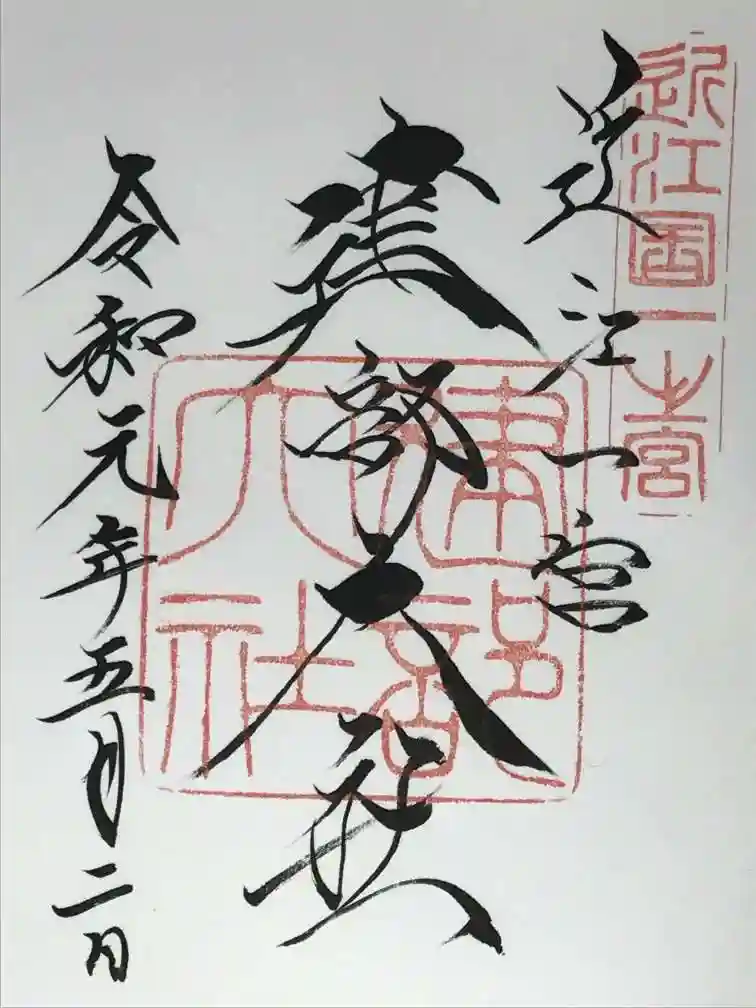 近江国一之宮
近江一宮
建部大社
建部大社
令和元年五月二日